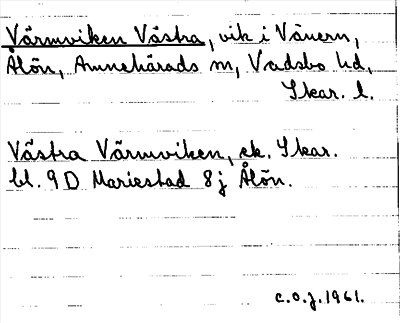 Värmviken Västra, vik i Vänern,
Ålön, Amnehärads sn, Vadsbo hd,
Skar. l.
Västra Värmviken, ek. Skar.
bl. 9D Mariestad 8j Ålön.
c.o.j. 1961.